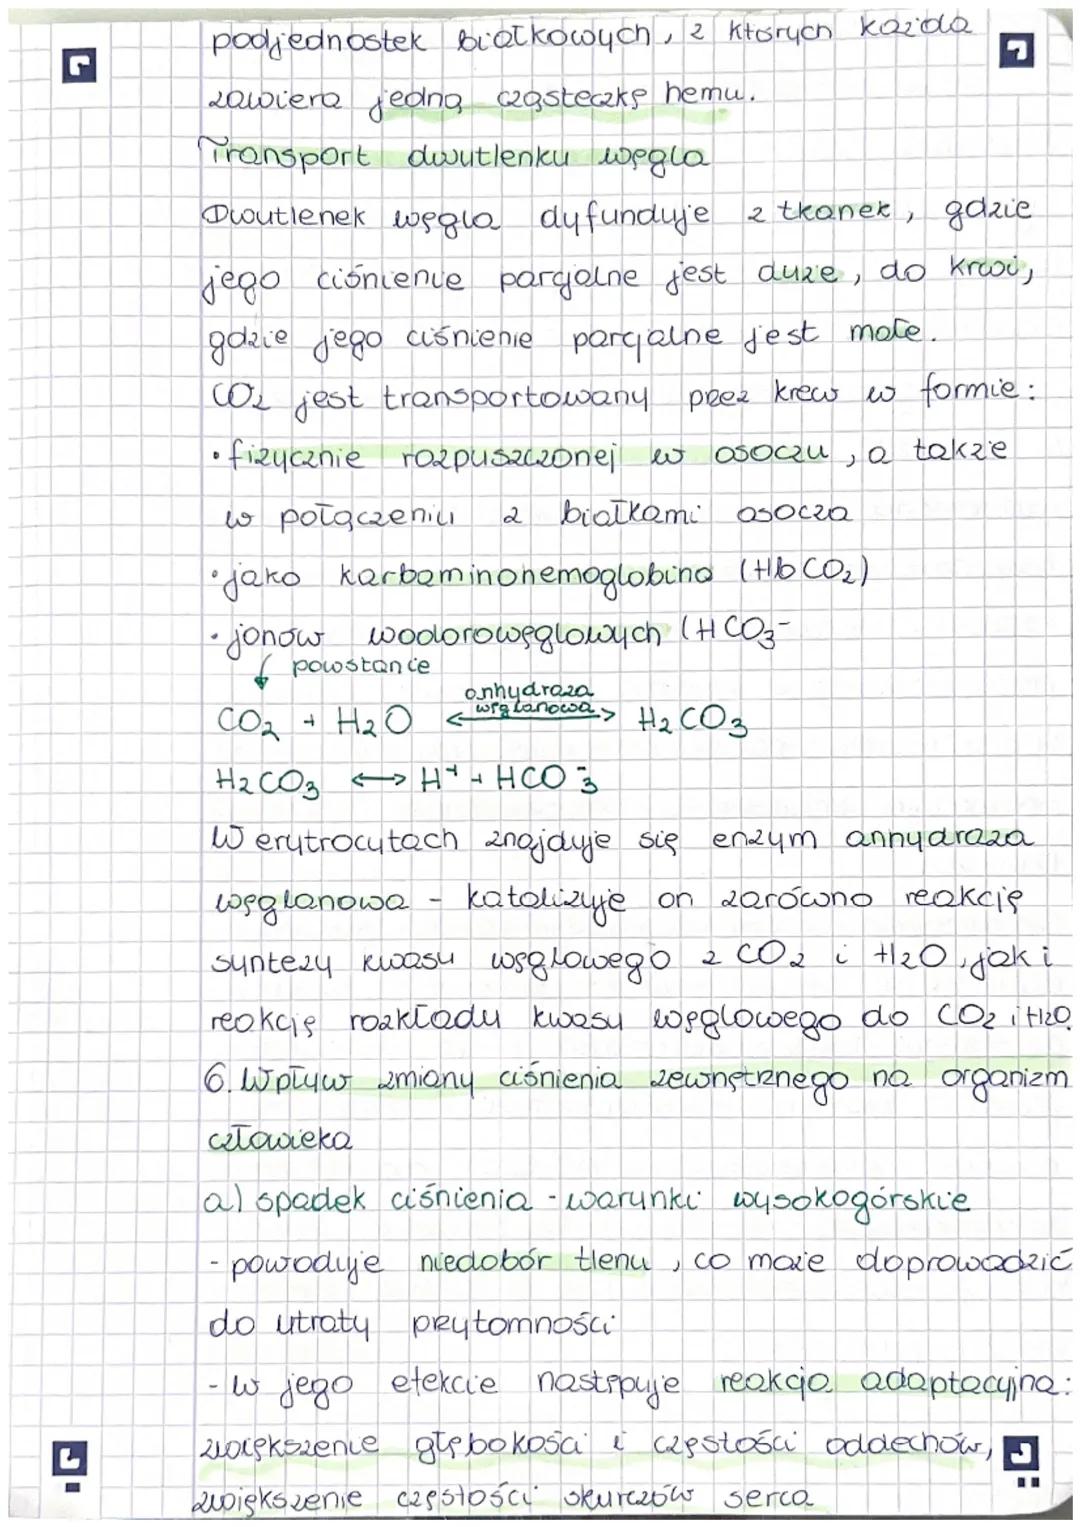 podjednostek białkowych, z których każda
zawiera jedną cząsteczkę hemu.
Transport dwutlenku węgla
Dwutlenek węgla dyfunduje z tkanek, gdzie
jego ciśnienie parcjalne jest duże, do krwi,
gdzie jego ciśnienie parcjalne jest małe.
CO₂ jest transportowany przez krew w formie:
• fizycznie rozpuszczonej w osoczu, a także
w połączeniu z białkami osocza
• jako karbaminohemoglobina (HbCO₂)
• jonów wodorowęglowych (HCO₃⁻
↓ powstanie
CO₂ + H₂O <anhydraza węglanowa> H₂CO₃
H₂CO₃ ⟷ H⁺ + HCO₃⁻
W erytrocytach znajduje się enzym anhydraza
węglanowa - katalizuje on zarówno reakcję
syntezy kwasu węglowego z CO₂ i H₂O, jak i
reakcję rozkładu kwasu węglowego do CO₂ i H₂O.
6. Wpływ zmiany ciśnienia zewnętrznego na organizm
człowieka
a) spadek ciśnienia - warunki wysokogórskie
- powoduje niedobór tlenu, co może doprowadzić
do utraty przytomności
- w jego efekcie następuje reakcja adaptacyjna:
zwiększenie głębokości i częstości oddechów,
zwiększenie częstości skurczów serca